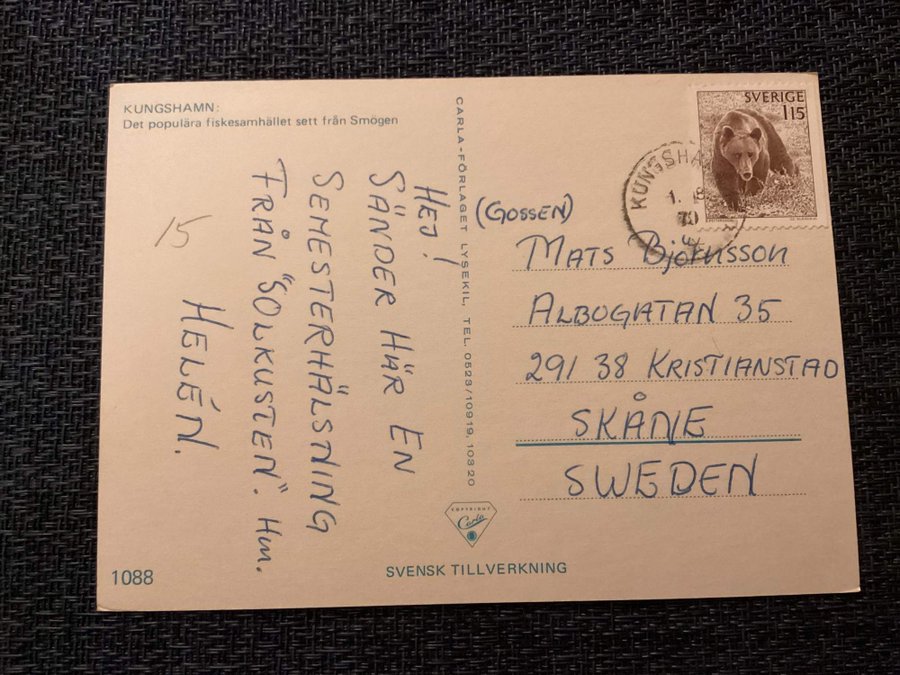 KUNGSHAMN:
Det populära fiskesamhället sett från Smögen
15
HEJ!
SÄNDER HÄR EN
SEMESTERHÄLSNING
FRÅN "SOLKUSTEN". Hm.
HELÉN.
1088
CARLA-FÖRLAGET LYSEKIL, TEL. 0523/10919, 103 20
COPYRIGHT
Carla
SVENSK TILLVERKNING
SVERIGE
115
KUNGSHA
1. 8
(GOSSEN)
MATS BJÖRNSSON
ALBOGATAN 35
291 38 KRISTIANSTAD
SKÅNE
SWEDEN